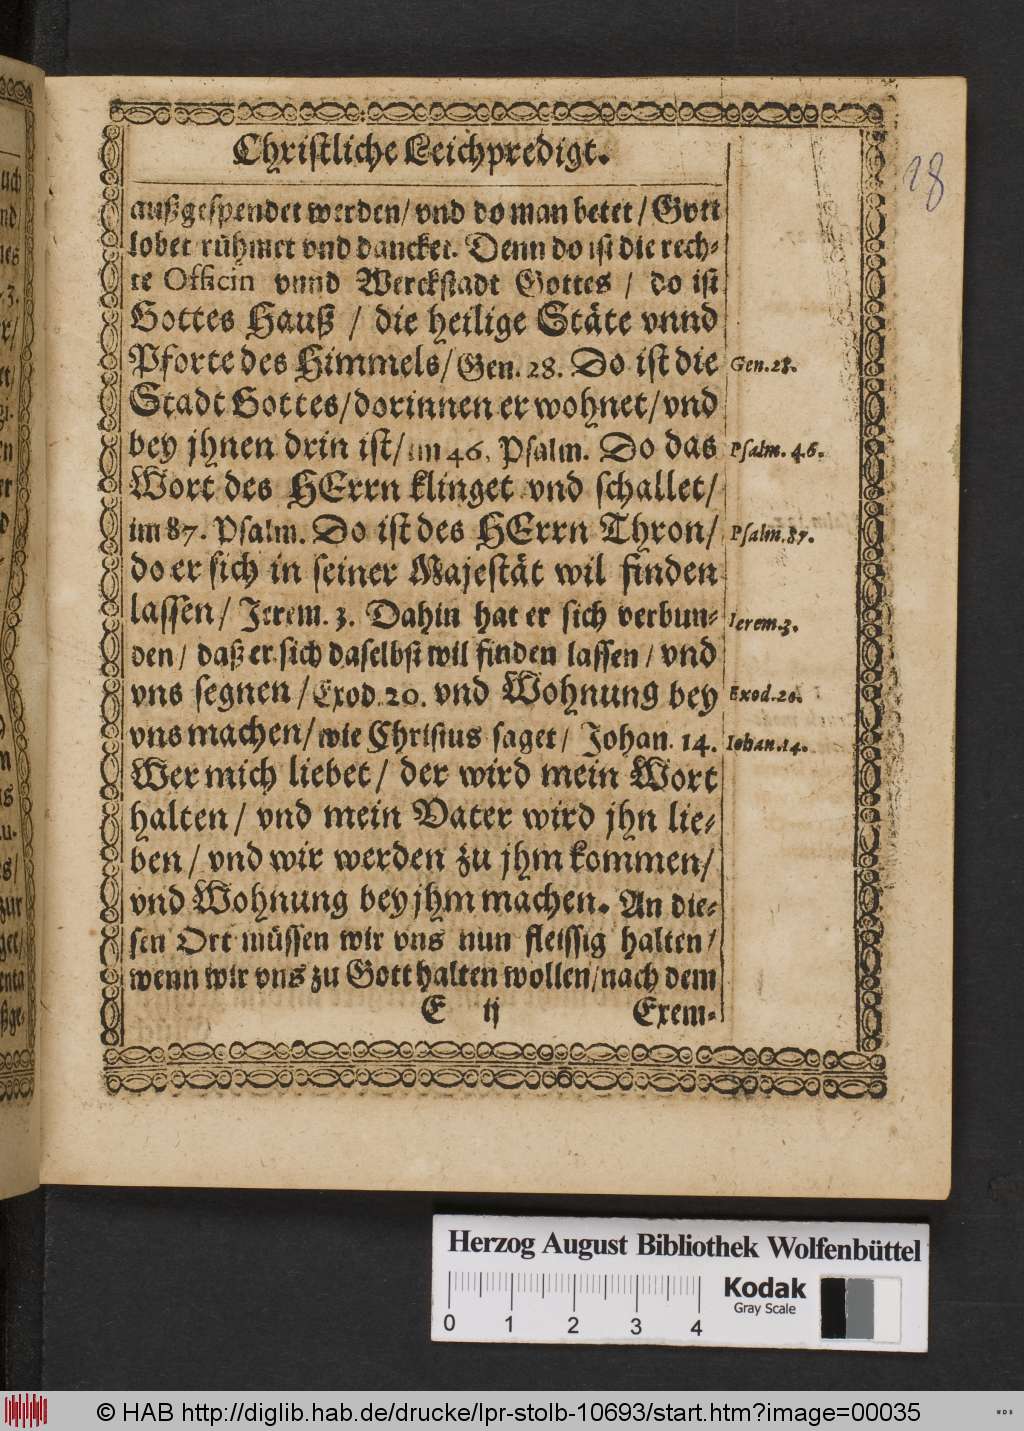 Christliche Leichpredigt.
außgespendet werden/ vnd do man betet/ Gott
lobet rühmet vnd dancket. Denn do ist die rech-
te Officin vnnd Werckstadt Gottes / do ist
Gottes Hauß / die heilige Stäte vnnd
Pforte des Himmels/ Gen. 28. Do ist die
Gen. 28.
Stadt Gottes/ dorinnen er wohnet/ vnd
bey jhnen drin ist/ im 46. Psalm. Do das
Psalm. 46.
Wort des HErrn klinget vnd schallet/
im 87. Psalm. Do ist des HErrn Thron/
Psalm. 87.
do er sich in seiner Majestät wil finden
lassen/ Jerem. 3. Dahin hat er sich verbun-
Ierem. 3.
den/ daß er sich daselbst wil finden lassen/ vnd
vns segnen/ Exod. 20. vnd Wohnung bey
Exod. 20.
vns machen/ wie Christus saget/ Johan. 14.
Iohan. 14.
Wer mich liebet/ der wird mein Wort
halten/ vnd mein Vater wird jhn lie-
ben/ vnd wir werden zu jhm kommen/
vnd Wohnung bey jhm machen. An die-
sen Ort müssen wir vns nun fleissig halten/
wenn wir vns zu Gott halten wollen/ nach dem
E ij Exem-
28
Herzog August Bibliothek Wolfenbüttel
Kodak
Gray Scale
0 1 2 3 4
© HAB http://diglib.hab.de/drucke/lpr-stolb-10693/start.htm?image=00035